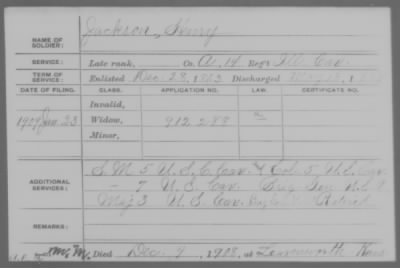 NAME OF SOLDIER: Jackson, Henry
SERVICE: Late rank, Co. A. 14 Reg't Ill. Cav.
TERM OF SERVICE: Enlisted Dec. 28, 1863 Discharged
DATE OF FILING. CLASS. APPLICATION NO. LAW. CERTIFICATE NO.
Invalid,
1909 Jan. 23 Widow, 912288
Minor,
ADDITIONAL SERVICES: S. M 5 U. S. C. Cav. & Col. 5 U. S. Cav.
- 7 U. S. Cav. Brig Gen U. S. A
Maj 3 U. S. Cav. Retired
REMARKS:
Died Dec. 9, 1908, at Leavenworth Kans